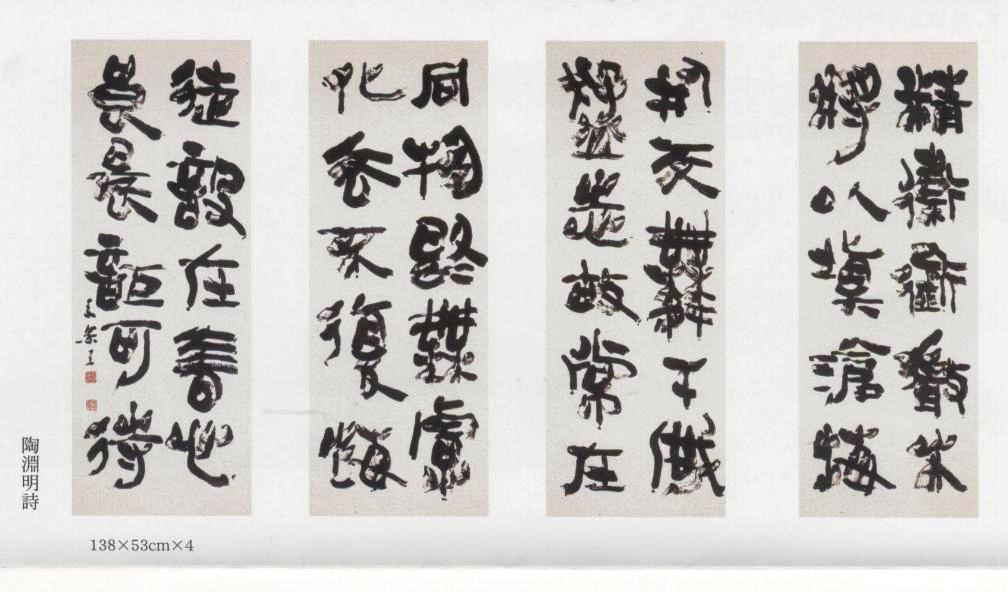 精衛銜微木
將以填滄海
刑天舞干戚
猛志故常在
同物既無慮
化去不復悔
徒設在昔心
良晨詎可待
陶淵明詩
138×53cm×4